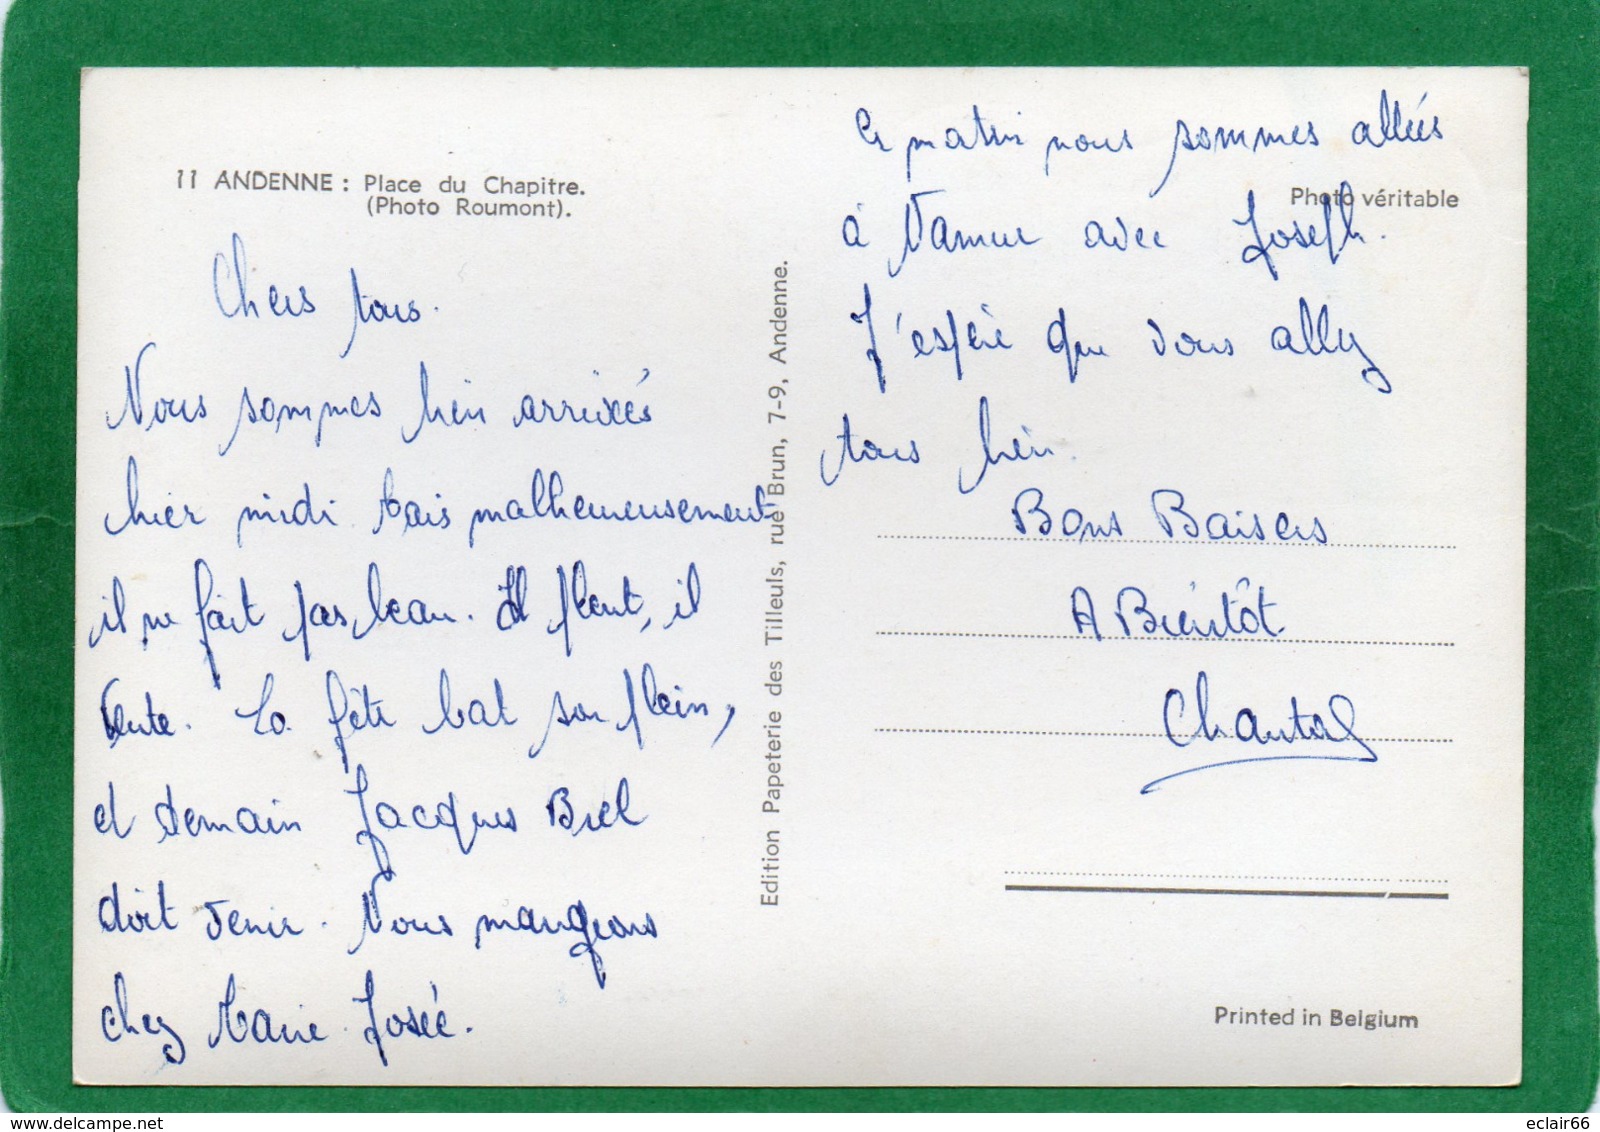 11 ANDENNE : Place du Chapitre.
(Photo Roumont).
Chers tous.
Nous sommes bien arrivés
hier midi. Mais malheureusement
il ne fait pas beau. Il pleut, il
vente. La fête bat son plein,
et demain Jacques Brel
doit venir. Nous mangeons
chez Marie-Josée.
Edition Papeterie des Tilleuls, rue Brun, 7-9, Andenne.
Ce matin nous sommes allées
Photo véritable
à Namur avec Joseph.
J'espère que vous allez
tous bien.
Bons Baisers
A Bientôt
Chantal
Printed in Belgium
delcampe.net
eclair66